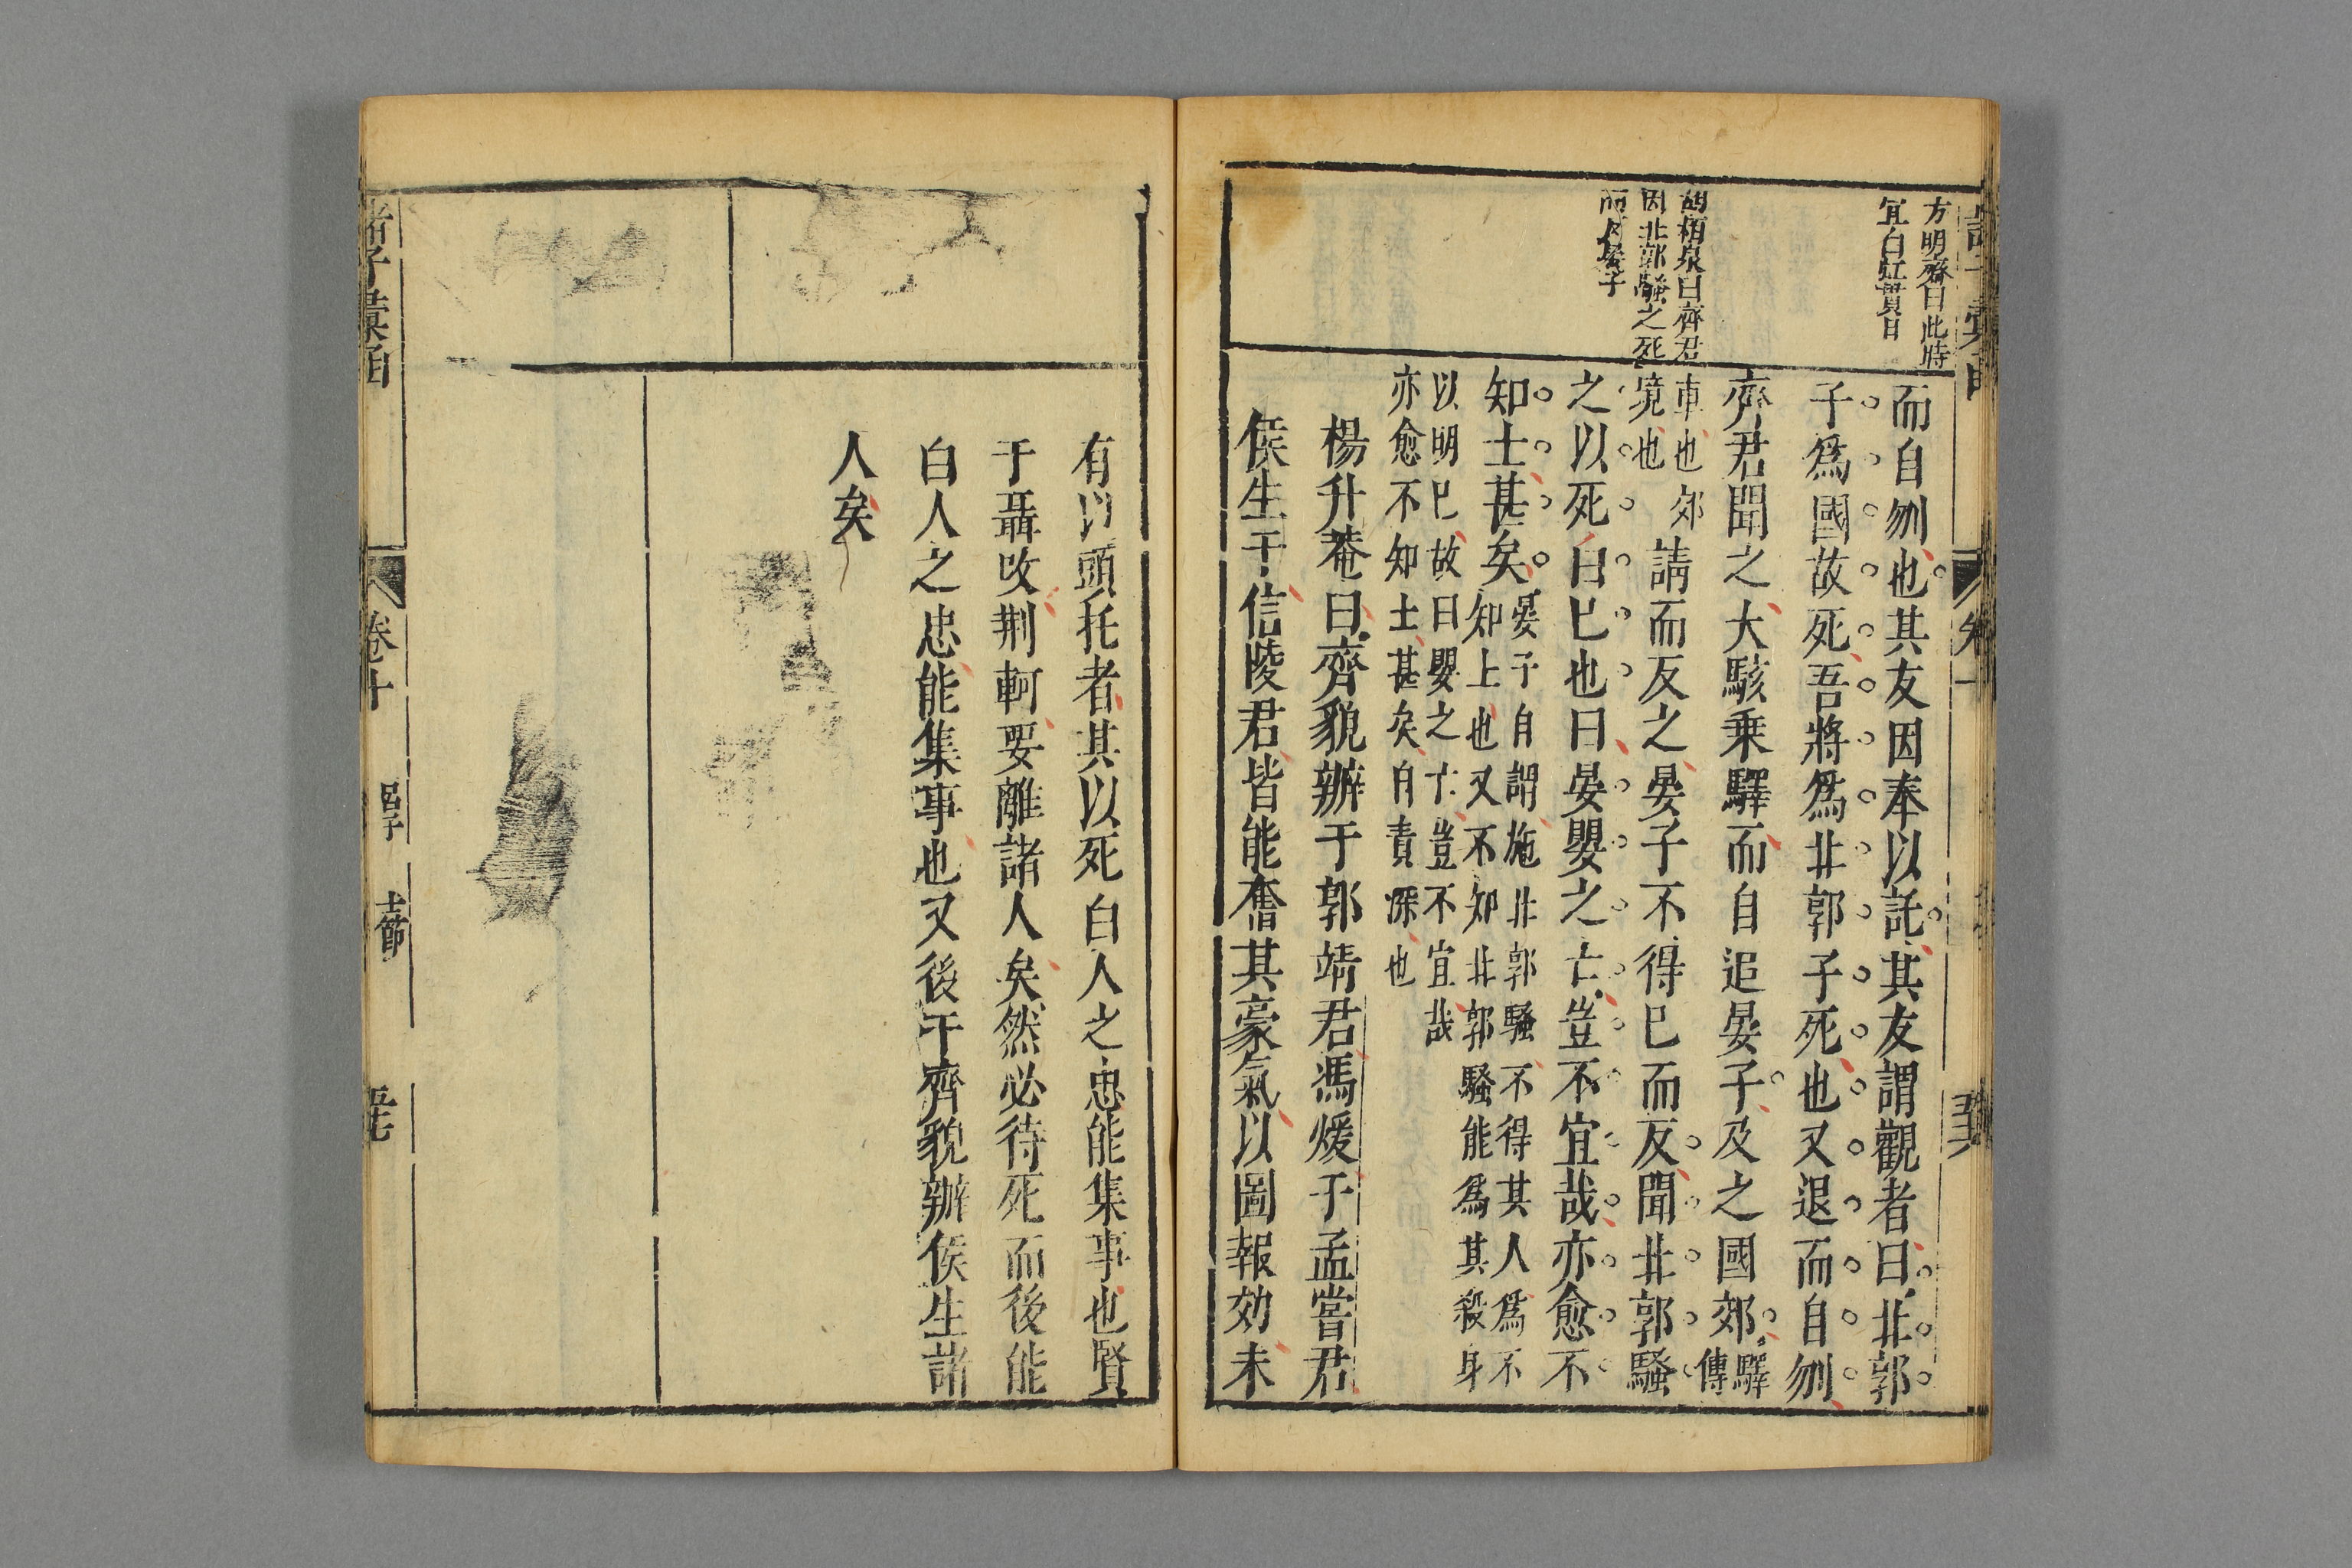 方明齋曰此時
宜白虹貫日
胡栢泉曰齊君
因北郭騷之死
而自刎也其友因奉以託其友謂觀者曰北郭
子爲國故死吾將爲北郭子死也又退而自刎
齊君聞之大駭乗驛而自追晏子及之國郊驛
傳
車也郊
境也
請而反之晏子不得已而反聞北郭騷
之以死白已也曰晏嬰之亡豈不宜哉亦愈不
知士甚矣
晏子自謂施北郭騷不得其人爲不
知士也又不知北郭騷能爲其殺身
以明已故曰嬰之亡豈不宜哉
亦愈不知士甚矣自責深也
楊升菴曰齊貌辦于郭靖君馮煖于孟嘗君
侯生于信陵君皆能奮其豪氣以圖報効未
有以頭托者其以死白人之忠能集事也賢
于聶政荆軻要離諸人矣然必待死而後能
白人之忠能集事也又後于齊貌辦侯生諸
人矣
諸子彚函
卷十
呂子
士節